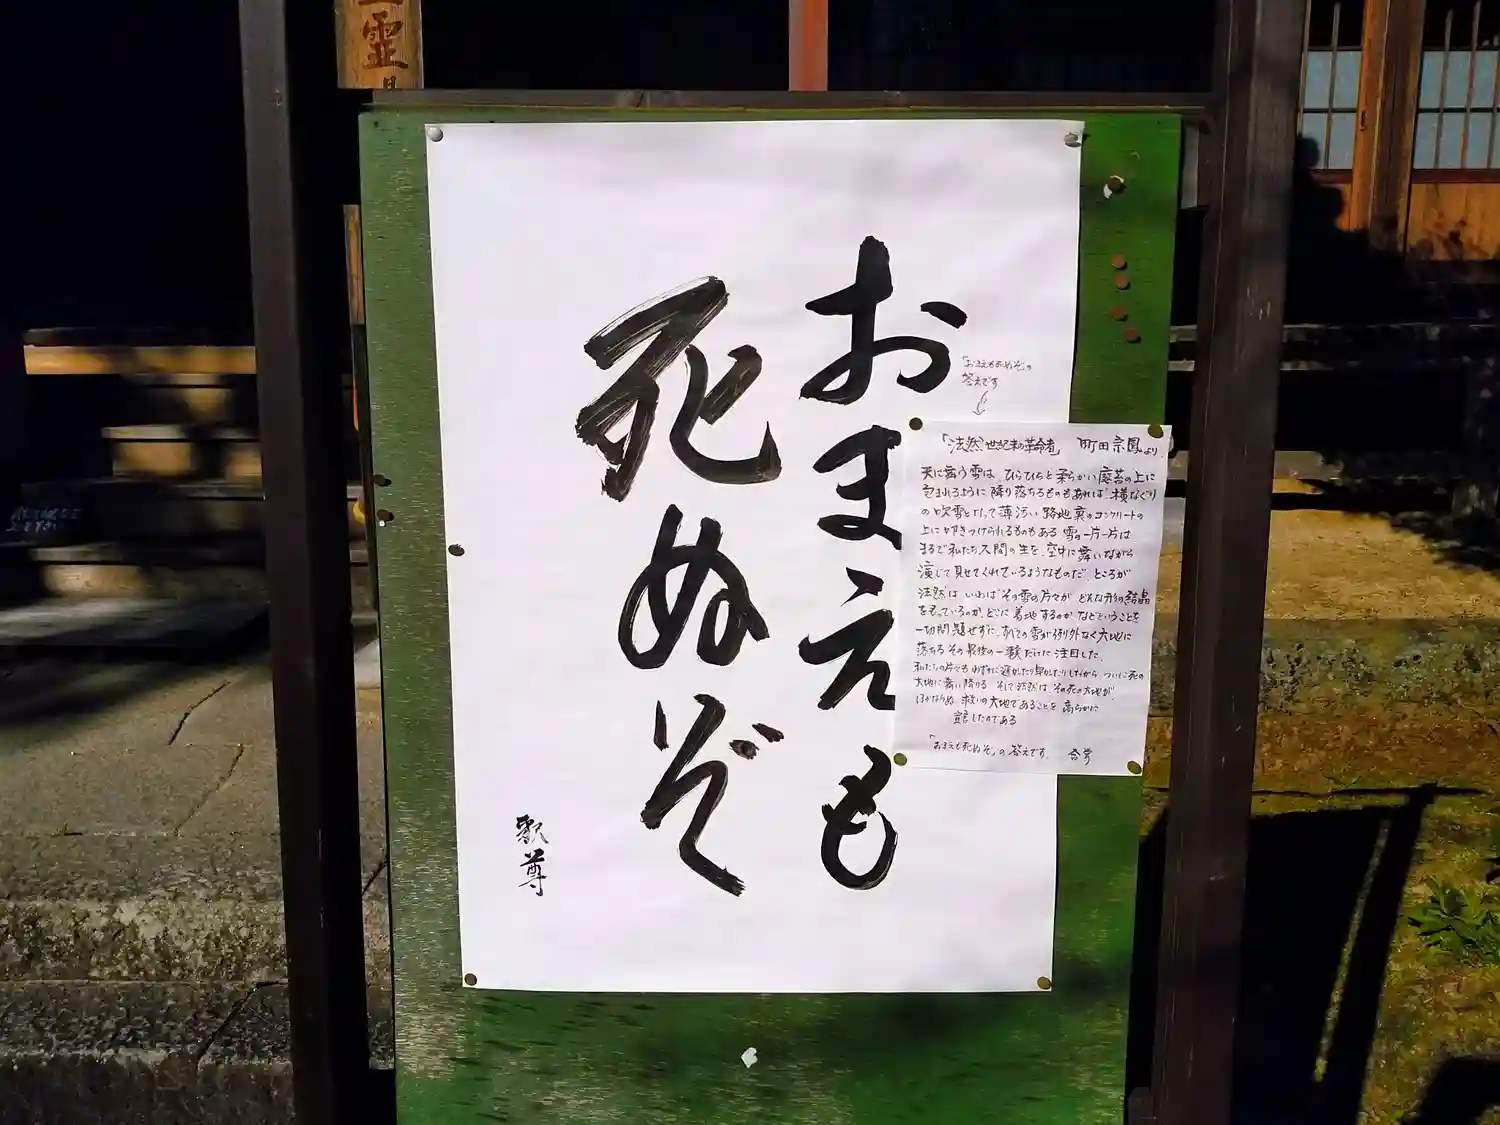 霊
おまえも
死ぬぞ
釈尊
「おまえも死ぬぞ」の
答えです
「法然・世紀末の革命者」 町田宗鳳より
天に舞う雪は、ひらひらと柔らかい庭苔の上に
包まれるように降り落ちるものもあれば、横なぐり
の吹雪となって薄汚い路地裏のコンクリートの
上に叩きつけられるものもある 雪の一片一片は
まるで私たち人間の生を、空中に舞いながら
演じて見せてくれているようなものだ、ところが
法然は いわばその雪の片々が どんな形の結晶
をもっているのか、どこに着地するのか、などということを
一切問題せずに、すべての雪が例外なく大地に
落ちる その最後の一瞬だけに注目した、
私たちの片々も わずかに遅かったり早かったりしながら ついに死の
大地に舞い降りる そして法然は、その死の大地が、
ほかならぬ 救いの大地であることを 高らかに
宣言したのである
「おまえも死ぬぞ」の答えです、 合掌